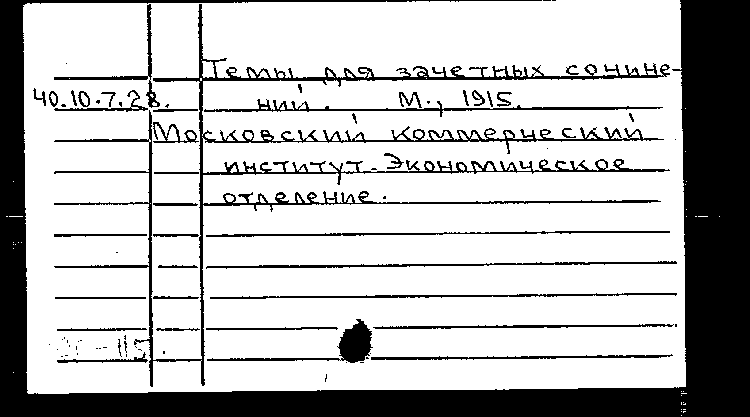 Темы для зачетных сочине-
40.10.7.28. ний. М., 1915.
Московский коммерческий
институт. Экономическое
отделение.